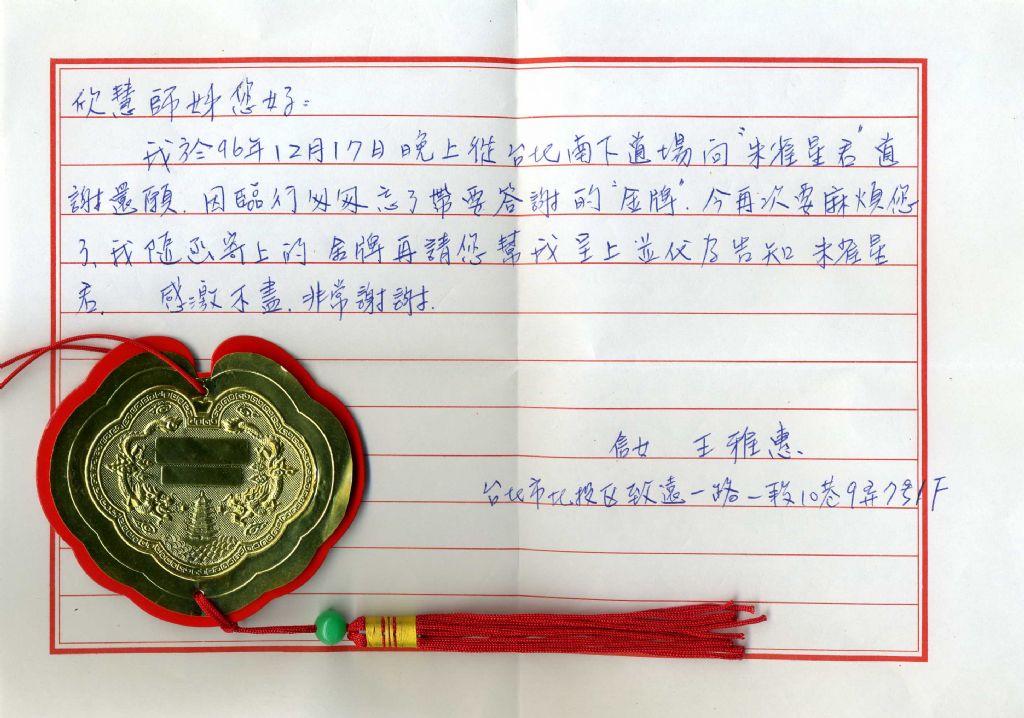 欣慧師姊您好：
我於96年12月17日晚上從台北南下道場向"朱雀星君"道
謝還願．因臨行匆匆忘了帶要答謝的"金牌"．今再次要麻煩您
了、我隨函寄上的 金牌再請您幫我呈上並代为告知 朱雀星
君． 感激不盡．非常謝謝．
信女 王雅惠．
台北市北投区致遠一路一段10巷9弄7号1F